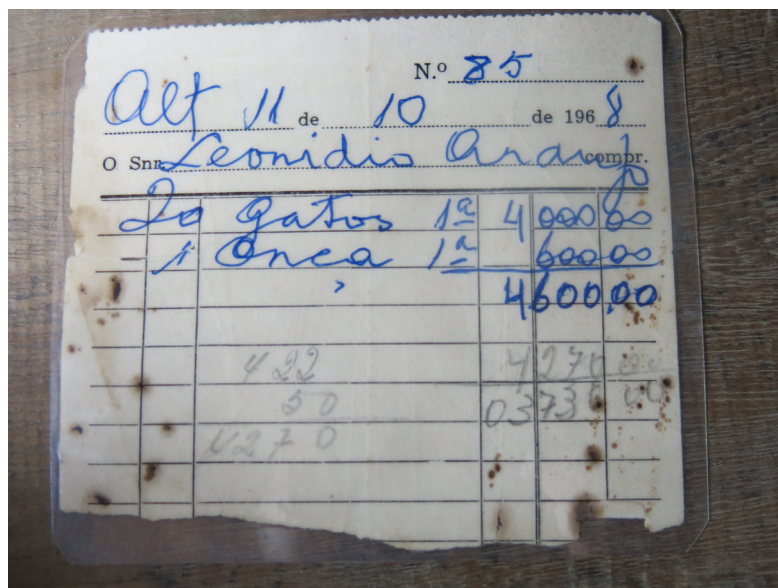 N.º 85
Alt 11 de 10 de 1968
O Snr. Leonidio Araujo compr.
20 gatos 1ª 4 000 00
1 Onca 1ª 600 00
4600,00
422 4270 00
50 0373 00
4270